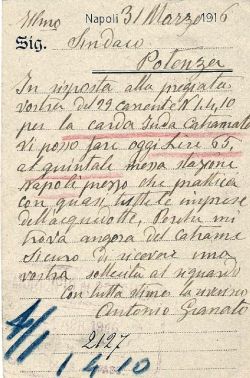 Napoli 31 Marzo 1916
Illmo
Sig. Sindaco
Potenza
In risposta alla pregiata
vostra del 29 corrente N 1410
per la corda Juda Catramata
vi posso fare oggi Lire 65,
al quintale messa stazione
Napoli prezzo che pratica
con quasi tutte le imprese
dell'acquedotto, Perchè mi
trova ancora del catrame
Sicuro di ricevere una
vostra sollecita al riguardo
Con tutta stima la riverisco
Antonio Granato
2127
4/1
1410